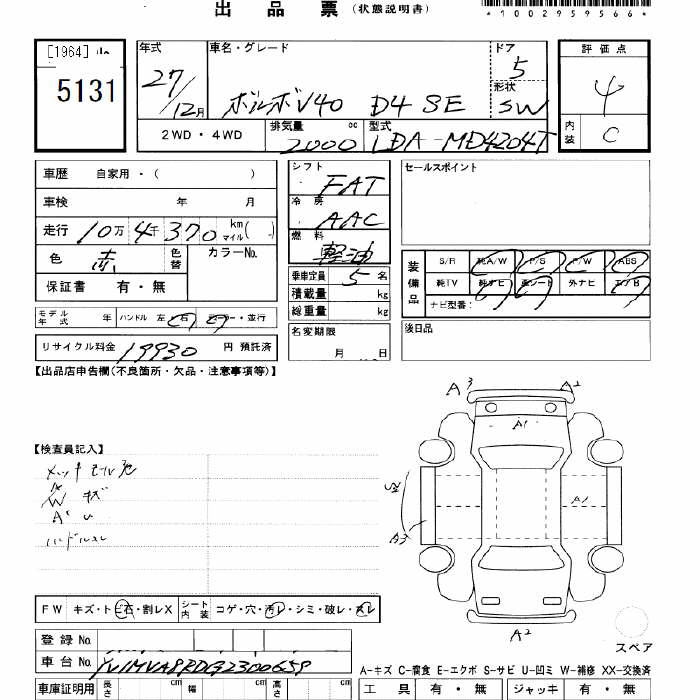 出品票（状態説明書）
*1002959566*
[1964]
5131
年式
27/12月
車名・グレード
ボルボV40 D4 SE
ドア
5
形状
SW
評価点
4
内装
C
2WD・4WD
排気量
2000 cc
型式
LDA-MD4204T
車歴 自家用・( )
シフト
FAT
セールスポイント
車検 年 月
冷房
AAC
走行 10万4千370 km マイル( )
燃料
軽油
色 赤 色替 カラーNo.
保証書 有・無
乗車定員 5名
積載量 kg
総重量 kg
装備品
S/R 純A/W P/S P/W ABS
純TV 純ナビ 革シート 外ナビ エアB
ナビ型番：
モデル年式 年 ハンドル 左・右 ディーラー・並行
名変期限
月 日
後日品
リサイクル料金 19930 円 預託済
【出品店申告欄(不良箇所・欠品・注意事項等)】
A3 A2
A1
【検査員記入】
W キズ
A1
A3
ハンドルスレ
FW キズ・ト ビ石・割レX シート内装 コゲ・穴・汚レ・シミ・破レ・スレ
登録No.
A2
スペア
車台No.
A-キズ C-腐食 E-エクボ S-サビ U-凹ミ W-補修 XX-交換済
車庫証明用 長さ cm 幅 cm 高さ cm
工具 有・無 ジャッキ 有・無